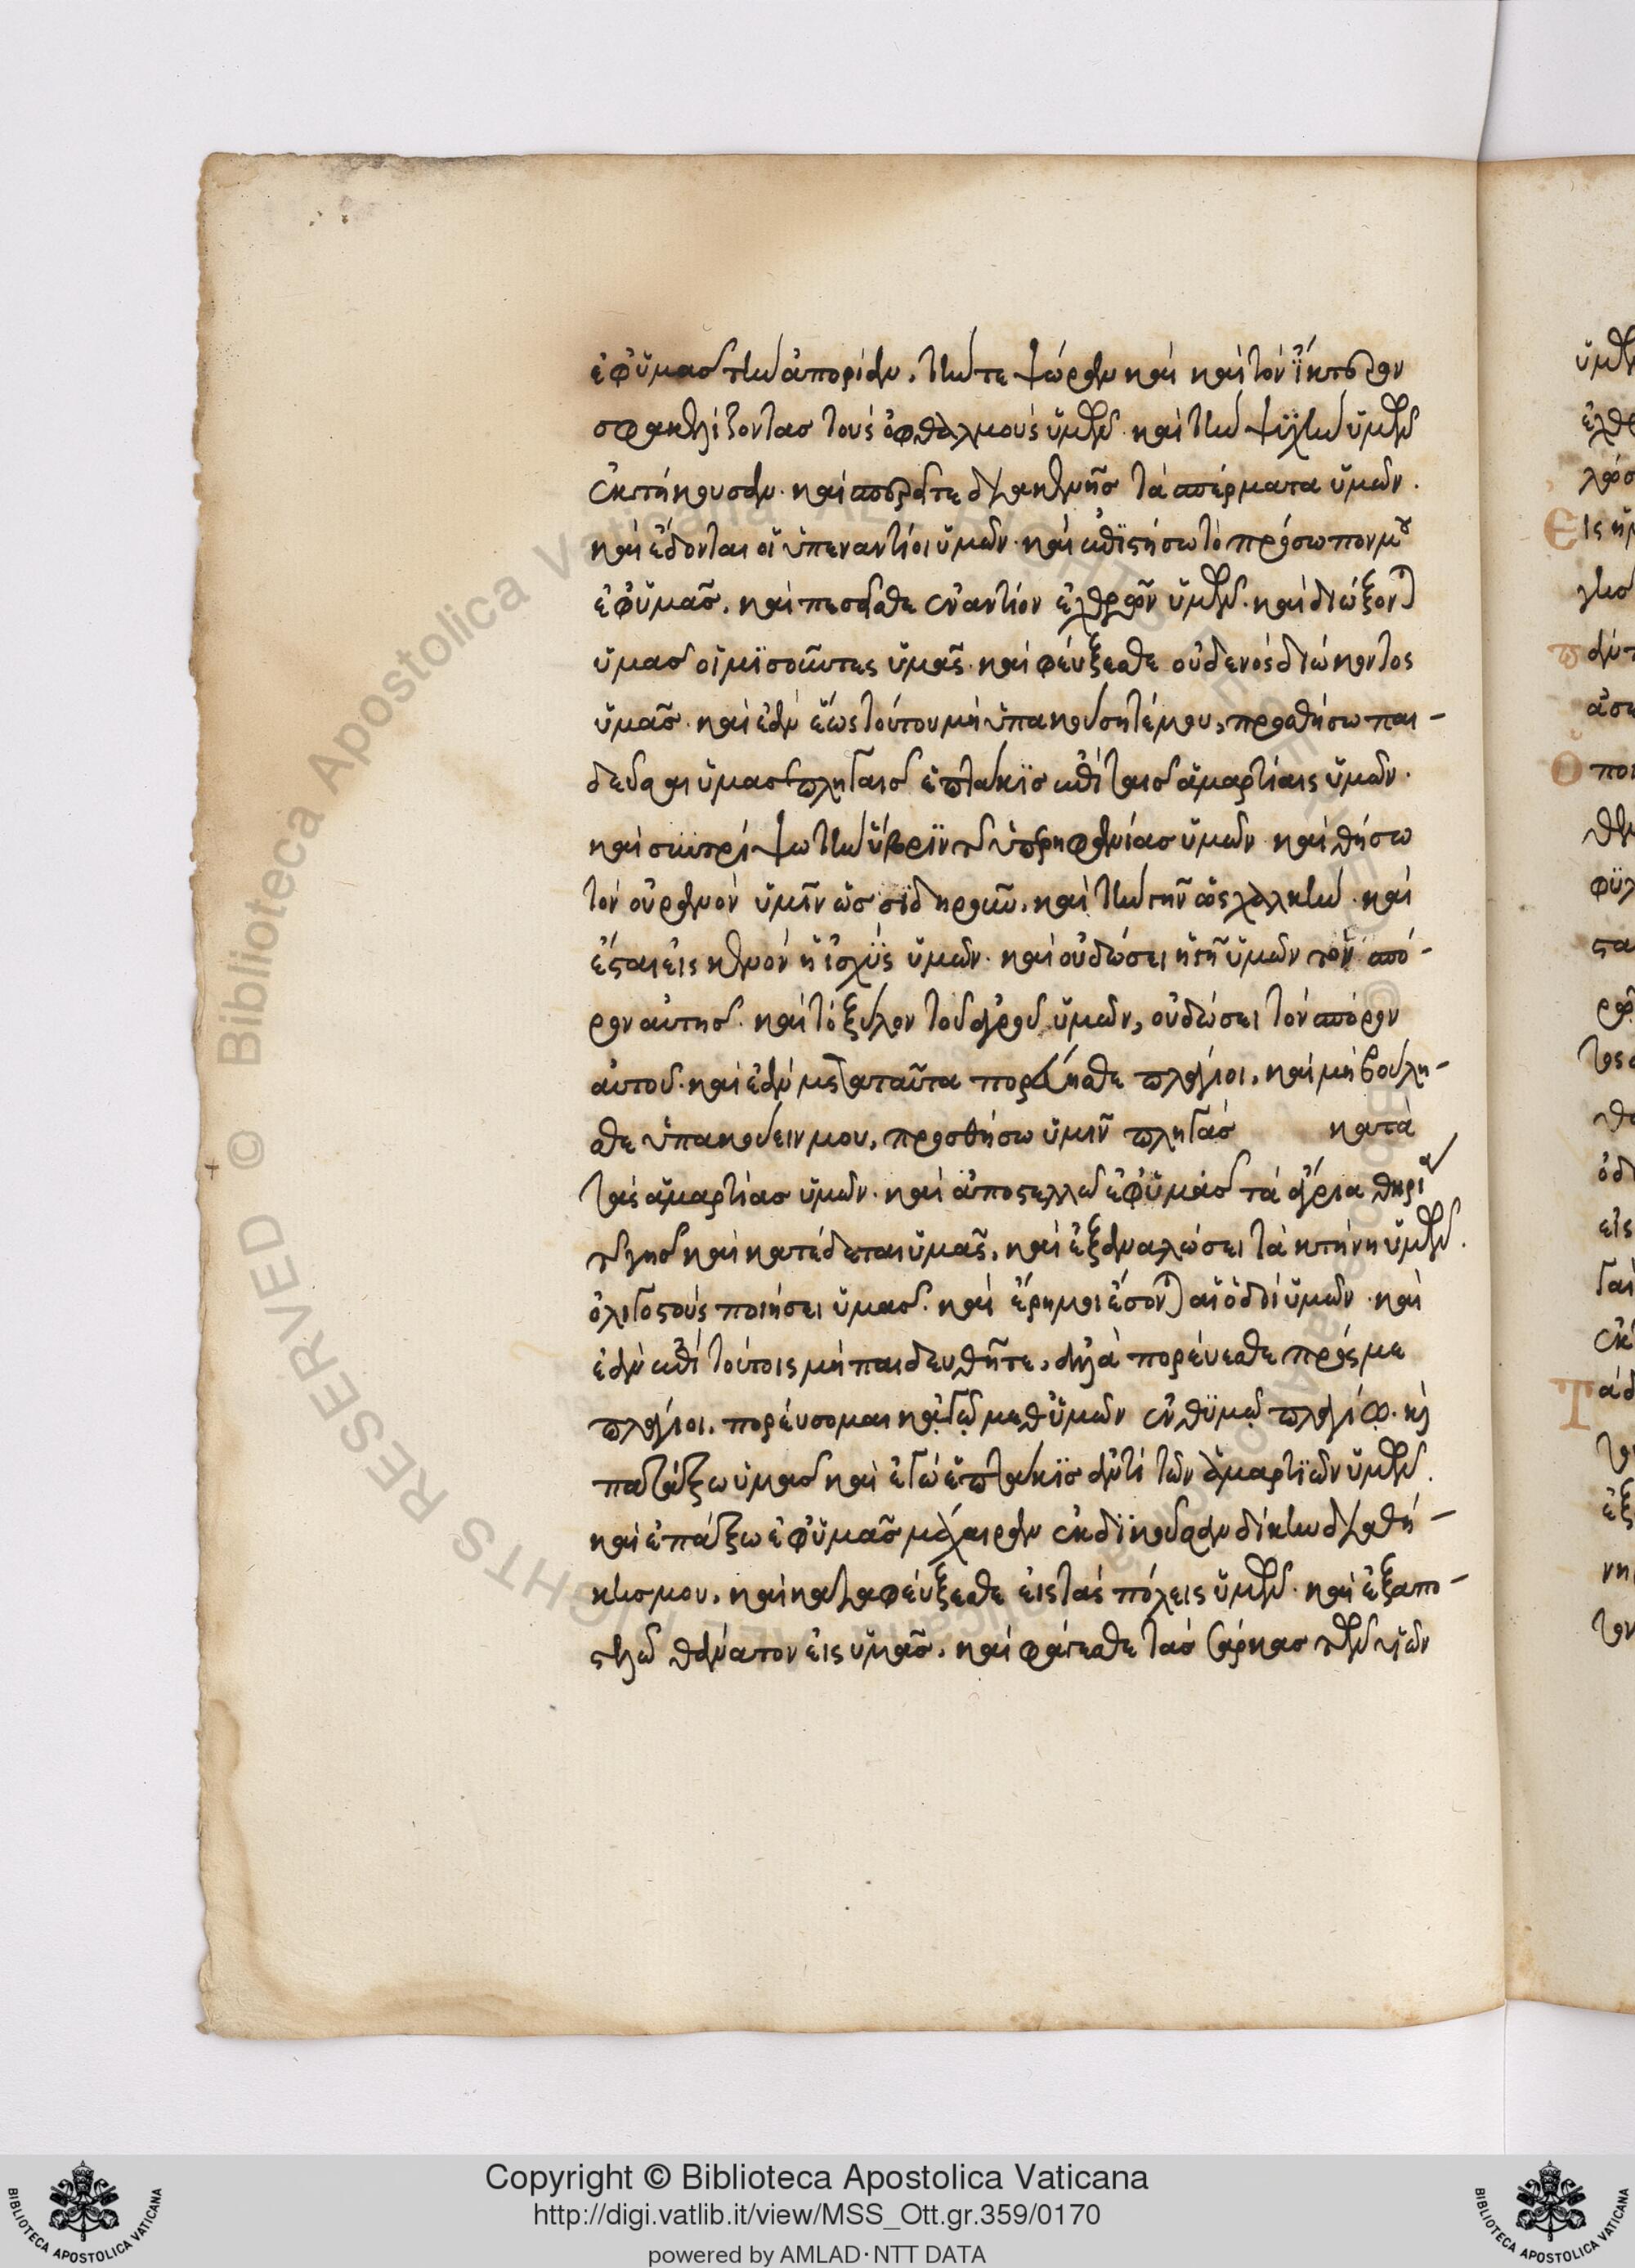 ἐφ ὑμᾶς τὴν ἀπορίαν. τήν τε ψώραν καὶ καὶ τὸν ἴκτερον
σφακελίζοντας τοὺς ὀφθαλμοὺς ὑμῶν. καὶ τὴν ψυχὴν ὑμῶν
ἐκτήκουσαν. καὶ σπερεῖτε διακενῆς τὰ σπέρματα ὑμῶν.
καὶ ἔδονται οἱ ὑπεναντίοι ὑμῶν. καὶ ἐπιστήσω τὸ πρόσωπον μου
ἐφ ὑμᾶς. καὶ πεσεῖσθε ἐναντίον ἐχθρῶν ὑμῶν. καὶ διώξονται
ὑμᾶς οἱ μισοῦντες ὑμᾶς. καὶ φεύξεσθε οὐδενὸς διώκοντος
ὑμᾶς. καὶ ἐὰν ἕως τούτου μὴ ὑπακούσητέ μου, προσθήσω παι-
δεῦσαι ὑμᾶς πληγαῖς ἑπτάκις ἐπὶ ταῖς ἁμαρτίαις ὑμῶν.
καὶ συντρίψω τὴν ὕβριν τῆς ὑπερηφανίας ὑμῶν καὶ θήσω
τὸν οὐρανὸν ὑμῖν ὡς σιδηροῦν. καὶ τὴν γῆν ὡς χαλκῆν. καὶ
ἔσται εἰς κενὸν ἡ ἰσχὺς ὑμῶν. καὶ οὐ δώσει ἡ γῆ ὑμῶν τὸν σπό-
ρον αὐτῆς. καὶ τὸ ξύλον τοῦ ἀγροῦ ὑμῶν, οὐ δώσει τὸν σπόρον
αὐτοῦ. καὶ ἐὰν μετὰ ταῦτα πορεύησθε πλάγιοι, καὶ μὴ βούλη-
σθε ὑπακούειν μου, προσθήσω ὑμῖν πληγὰς κατὰ
τὰς ἁμαρτίας ὑμῶν. καὶ ἀποστελλῶ ἐφ ὑμᾶς τὰ ἄγρια θηρία
τῆς γῆς καὶ κατέδεται ὑμᾶς, καὶ ἐξαναλώσει τὰ κτήνη ὑμῶν.
ὀλιγοστοὺς ποιήσει ὑμᾶς. καὶ ἔρημοι ἔσονται αἱ ὁδοὶ ὑμῶν. καὶ
ἐὰν ἐπὶ τούτοις μὴ παιδευθῆτε, ἀλλὰ πορεύεσθε πρός με
πλάγιοι. πορεύσομαι κἀγὼ μεθ ὑμῶν ἐν θυμῷ πλαγίῳ. καὶ
πατάξω ὑμᾶς καὶ ἐγὼ ἑπτάκις ἀντὶ τῶν ἁμαρτιῶν ὑμῶν.
καὶ ἐπάξω ἐφ ὑμᾶς μάχαιραν ἐκδικοῦσαν δίκην διαθή-
κης μου, καὶ καταφεύξεσθε εἰς τὰς πόλεις ὑμῶν. καὶ ἐξαπο-
στελῶ θάνατον εἰς ὑμᾶς. καὶ φάγεσθε τὰς σάρκας τῶν υἱῶν
Copyright © Biblioteca Apostolica Vaticana
http://digi.vatlib.it/view/MSS_Ott.gr.359/0170
powered by AMLAD·NTT DATA